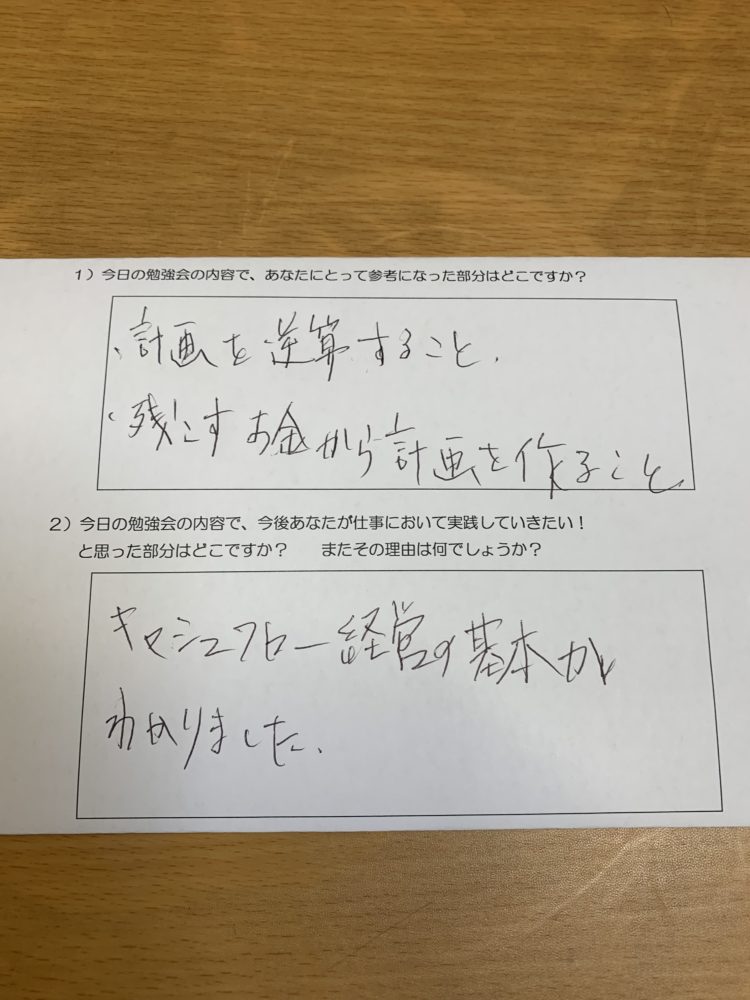 1）今日の勉強会の内容で、あなたにとって参考になった部分はどこですか？
、計画を逆算すること、
・残こすお金から計画を作ること
2）今日の勉強会の内容で、今後あなたが仕事において実践していきたい！
と思った部分はどこですか？　またその理由は何でしょうか？
キャシュフロー経営の基本が
わかりました、